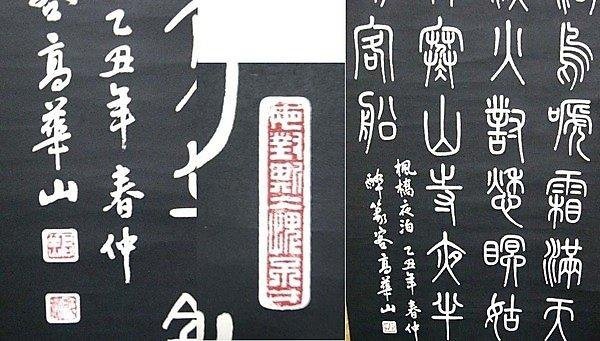 乙丑年春仲
高華山
烏啼霜滿天
火對愁眠姑
寒山寺夜半
客船
楓橋夜泊 乙丑年春仲
醉篆客高華山